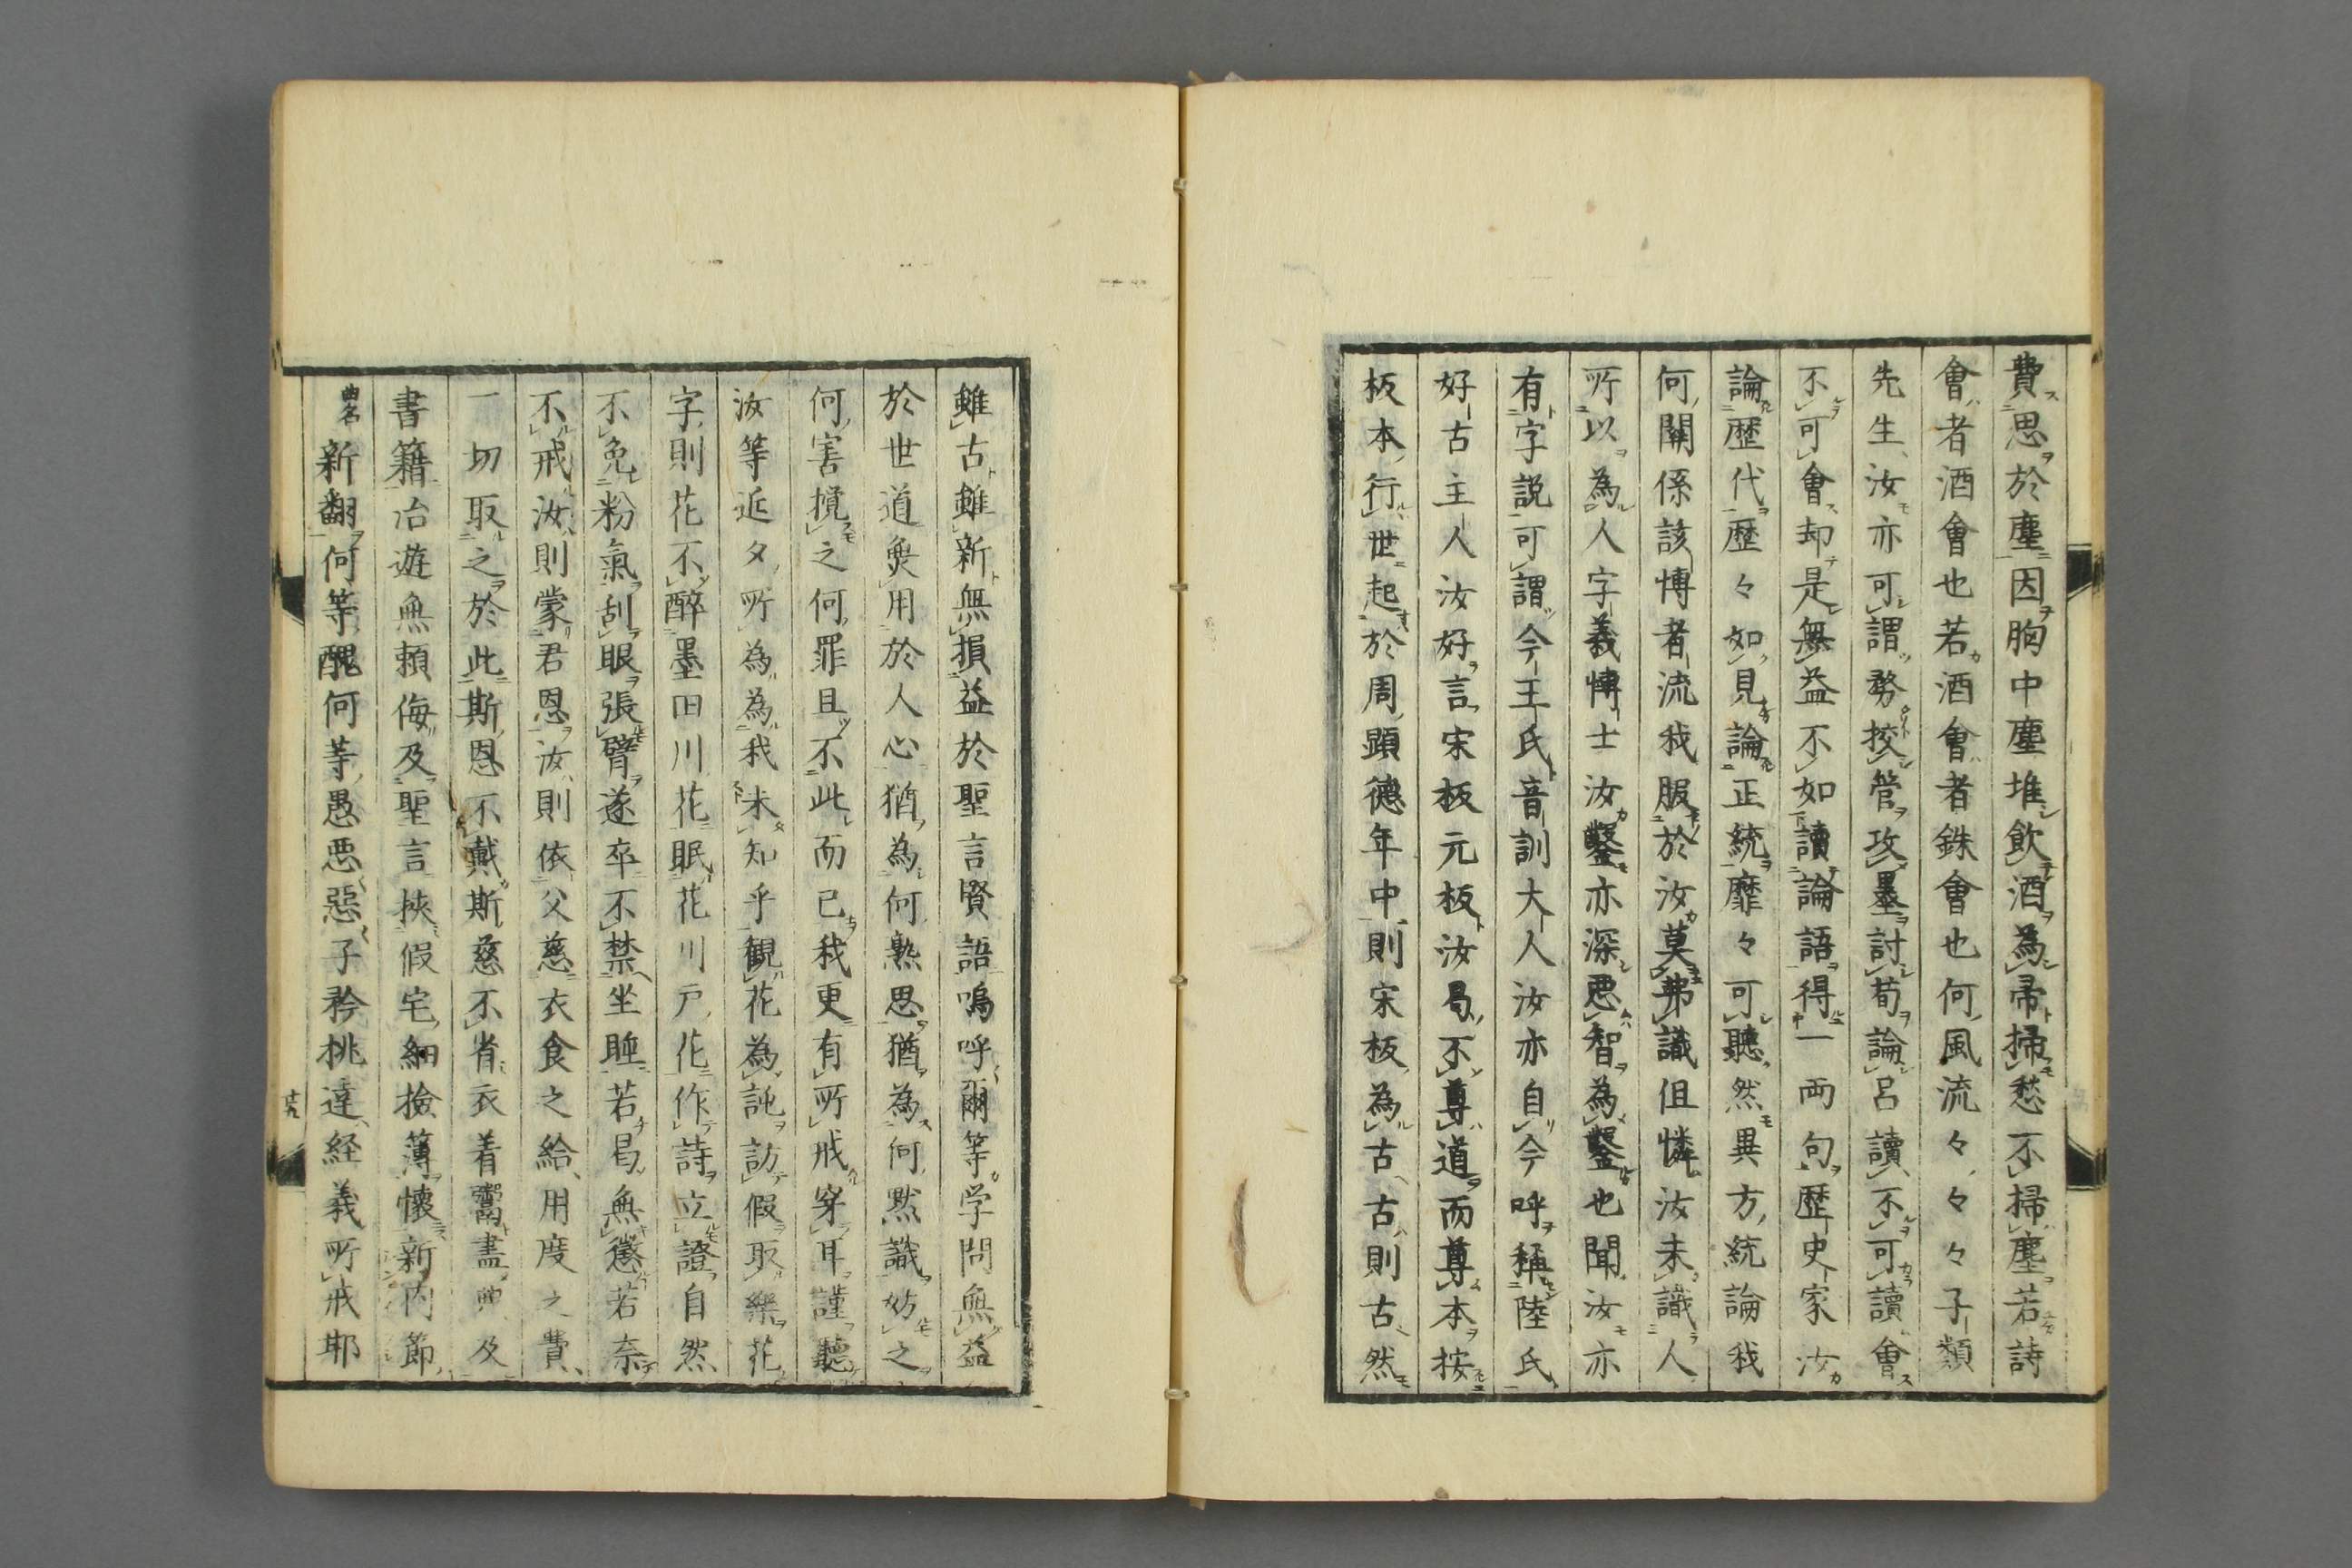 費思於塵因胸中塵堆飲酒為帚掃愁不掃塵若詩
會者酒會也若酒會者銖會也何風流々々々子類
先生汝亦可謂務挍管攻墨討荀論呂讀不可讀會
不可會却是無益不如讀論語得一両句歴史家汝
論歴代歴々如見論正統靡々可聽然異方統論我
何關係該博者流我服於汝莫弗識但憐汝未識人
所以為人字義博士汝鑿亦深悪智為鑿也聞汝亦
有字説可謂今王氏音訓大人汝亦自今呼稱陸氏
好古主人汝好言宋板元板汝曷不尊道而尊本按
板本行世起於周顕德年中則宋板為古古則古然
雖古雖新無損益於聖言賢語嗚呼爾等学問無益
於世道無用於人心猶為何熟思猶為何黙識妨之
何害攪之何罪且不此而已我更有所戒穿耳謹聽
汝等近夕所為為我未知乎観花為訛訪假取樂花
字則花不醉墨田川花眠花川戸花作詩立證自然
不免粉氣刮眼張臂遂卒不禁坐睡若曷無懲若奈
不戒汝則蒙君恩汝則依父慈衣食之給用度之費
一切取之於此斯恩不戴斯慈不省衣着鬻盡典及
書籍冶遊無頼侮及聖言挾假宅細撿薄懐新内節
曲名新翻何等醜何等愚悪惡子衿挑達経義所戒耶
廿九